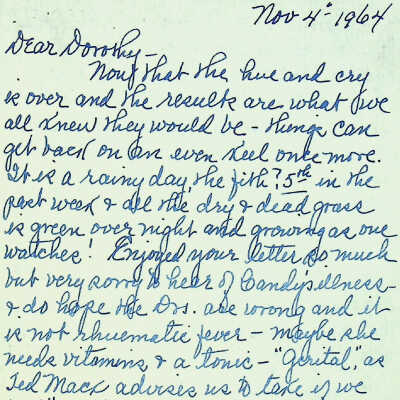 Nov 4th 1964
Dear Dorothy-
Now that the hue and cry
is over and the results are what we
all knew they would be - things can
get back on an even keel once more.
It is a rainy day, the fith? 5th in the
past week & all the dry & dead grass
is green over night and growing as one
watches! Enjoyed your letter so much
but very sorry to hear of Candy's illness-
& do hope the Drs. are wrong and it
is not rhuematic fever - maybe she
needs vitamins & a tonic - "Gerital", as
Ted Mack advises us to take if we